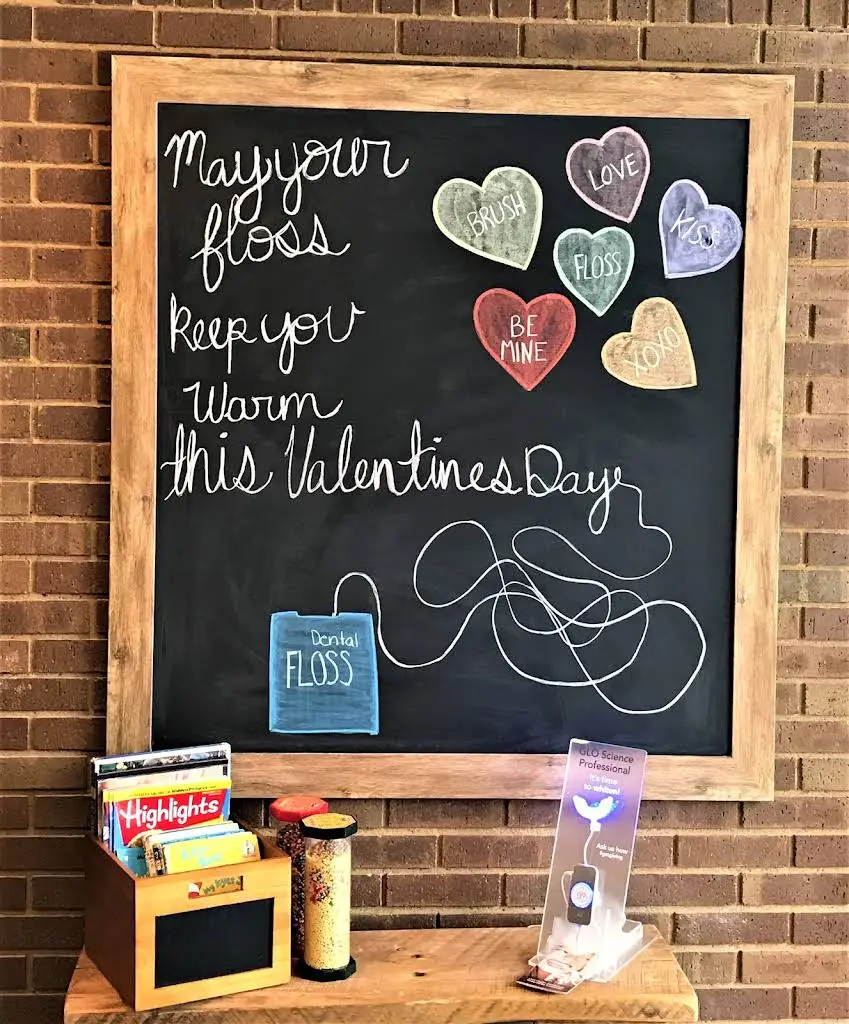 May your
floss
keep you
Warm
this Valentines Day
BRUSH
LOVE
KISS
FLOSS
BE
MINE
XOXO
Dental
FLOSS
Highlights
GLO Science
Professional
It's time
to whiten!
Ask us how